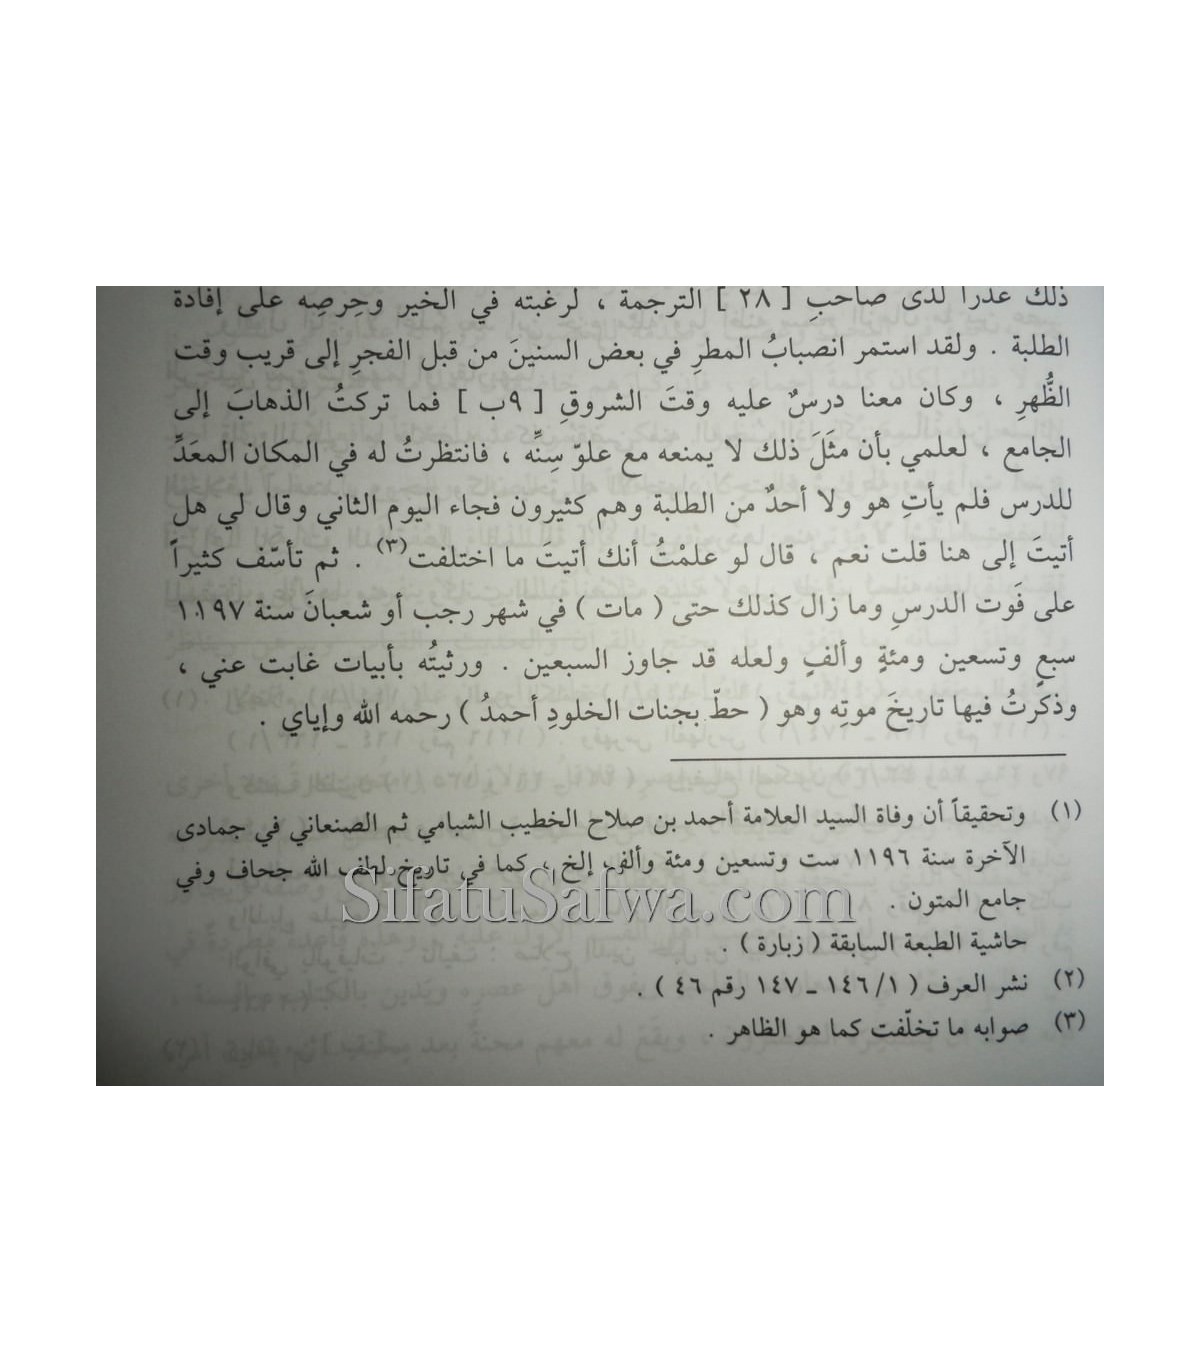 ذلك عذراً لدى صاحبِ [ ٢٨ ] الترجمة ، لرغبته في الخير وحِرصِه على إفادة
الطلبة . ولقد استمر انصبابُ المطرِ في بعض السنينَ من قبل الفجرِ إلى قريب وقت
الظُّهرِ ، وكان معنا درسٌ عليه وقتَ الشروقِ [ ٩ب ] فما تركتُ الذهابَ إلى
الجامع ، لعلمي بأن مثَلَ ذلك لا يمنعه مع علوّ سِنِّه ، فانتظرتُ له في المكان المعَدِّ
للدرس فلم يأتِ هو ولا أحدٌ من الطلبة وهم كثيرون فجاء اليوم الثاني وقال لي هل
أتيتَ إلى هنا قلت نعم ، قال لو علمْتُ أنك أتيتَ ما اختلفت(٣) . ثم تأسّف كثيراً
على فَوت الدرسِ وما زال كذلك حتى ( مات ) في شهر رجب أو شعبانَ سنة ١١٩٧
سبعٍ وتسعين ومئةٍ وألفٍ ولعله قد جاوز السبعين . ورثيتُه بأبيات غابت عني ،
وذكرتُ فيها تاريخَ موتِه وهو ( حطّ بجنات الخلودِ أحمدُ ) رحمه الله وإياي .
(١) وتحقيقاً أن وفاة السيد العلامة أحمد بن صلاح الخطيب الشبامي ثم الصنعاني في جمادى
الآخرة سنة ١١٩٦ ست وتسعين ومئة وألف إلخ ، كما في تاريخ لطف الله جحاف وفي
SifatuSafwa.com
جامع المتون .
حاشية الطبعة السابقة ( زبارة ) .
(٢) نشر العرف ( ١/ ١٤٦ ـ ١٤٧ رقم ٤٦ ) .
(٣) صوابه ما تخلّفت كما هو الظاهر .